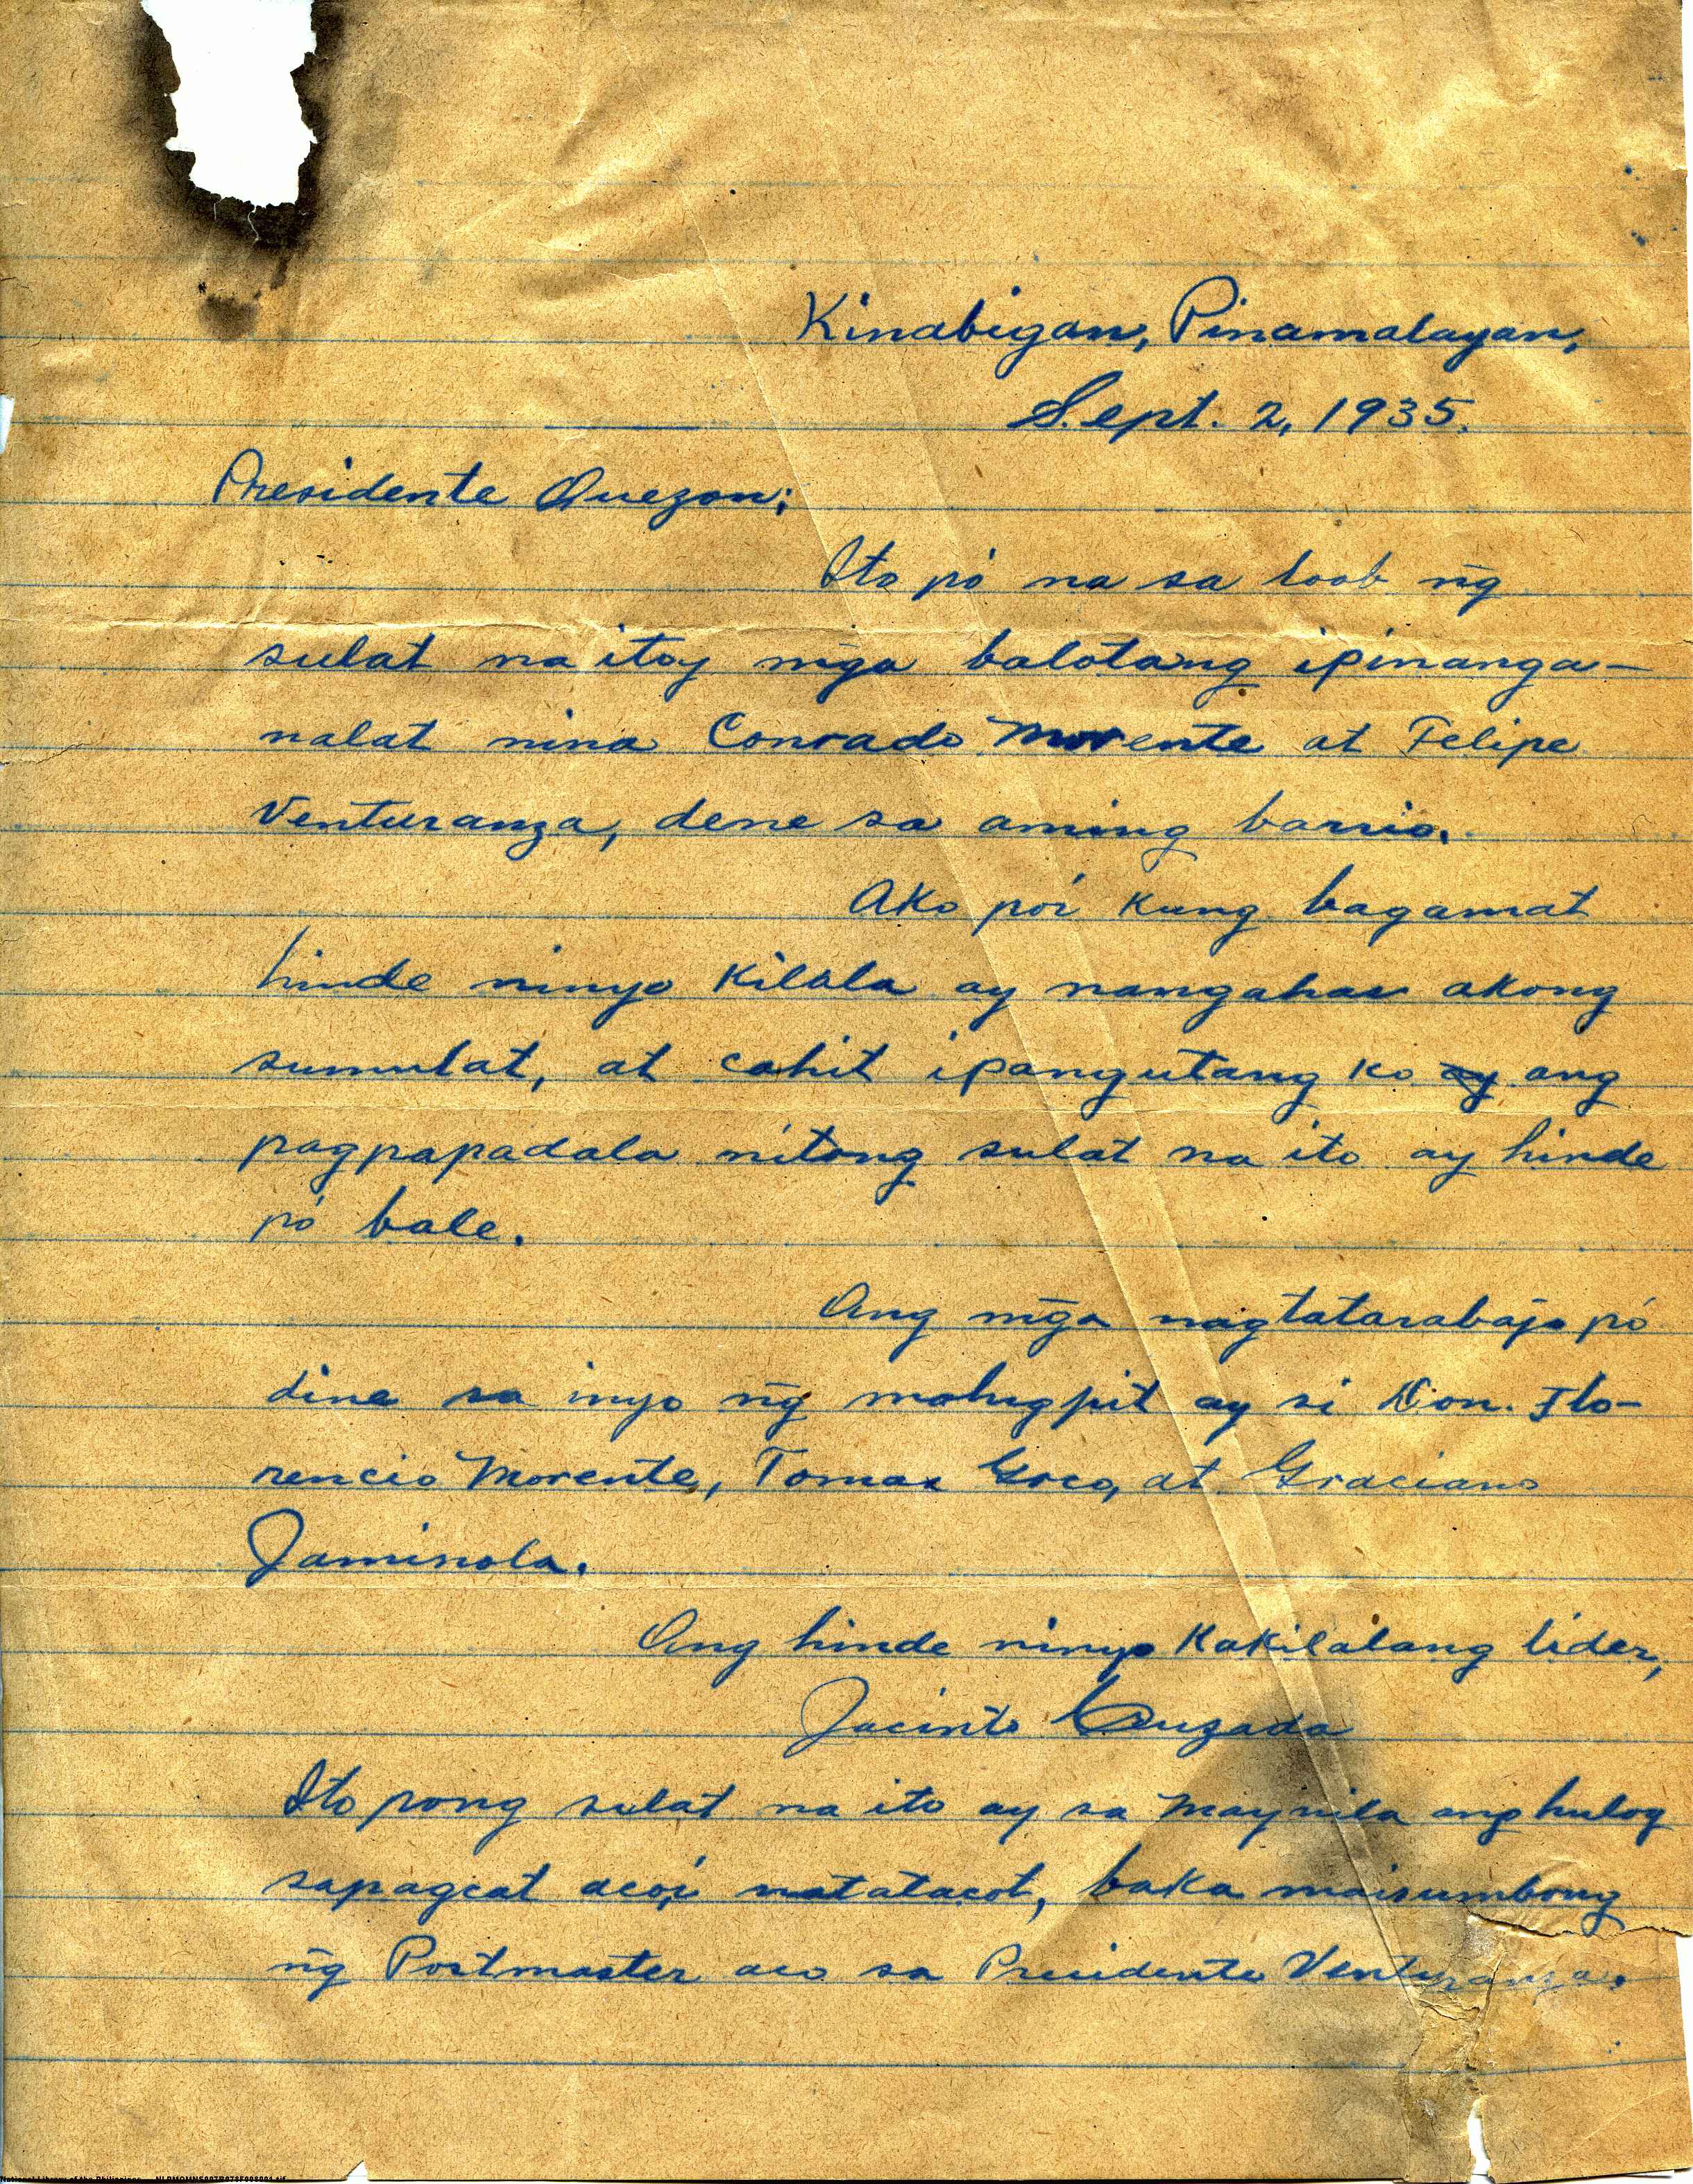 Kinabigan, Pinamalayan,
Sept. 2, 1935.
Presidente Quezon;
Ito pó na sa loob ñg
sulat na itoy mg̃a balotang ipinanga-
nalat nina Conrado Morente at Felipe
Venturanza, dene sa aming barrio.
Ako poi kung bagamat
hinde ninyo kilala ay nangahas akong
sumulat, at cahit ipangutang ko ay ang
pagpapadala nitong sulat na ito ay hinde
pó bale.
Ang mg̃a nagtatarabajo pó
dine sa inyo ñg mahigpit ay si Don. Flo-
rencio Morente, Tomas Goco, at Graciano
Jaminola.
Ang hinde ninyo kakilalang lider,
Jacinto Cruzada
Ito pong sulat na ito ay sa Maynila ang hulog
sapagcat acoi natatacot, baka maisumbong
ñg Postmaster aco sa Presidente Venturanza.